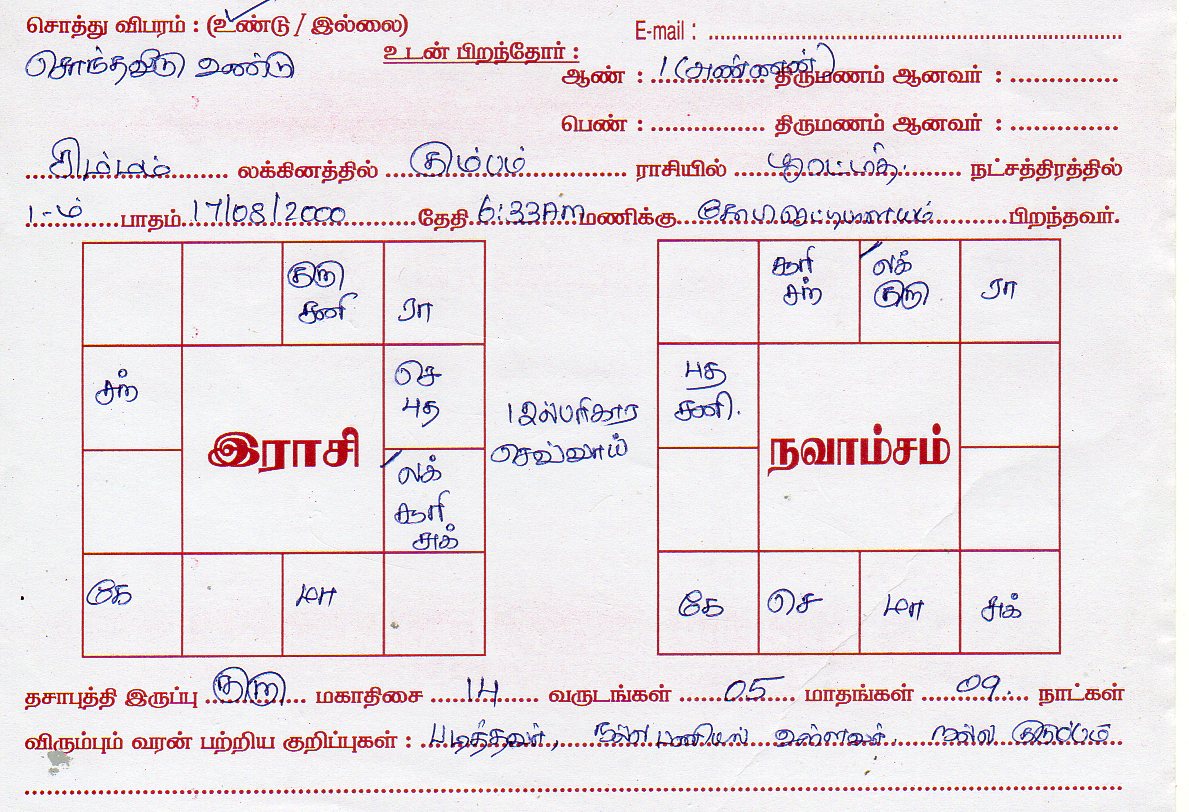 சொத்து விபரம் : (உண்டு / இல்லை)
E-mail :
சொந்தவீடு உண்டு
உடன் பிறந்தோர் :
ஆண் : 1 (அண்ணன்) திருமணம் ஆனவர் :
பெண் : திருமணம் ஆனவர் :
சிம்மம் லக்கினத்தில் கும்பம் ராசியில் பூரட்டாதி நட்சத்திரத்தில்
1-ம் பாதம் 17/08/2000 தேதி 6:33AM மணிக்கு பிறந்தவர்.
குரு
சனி
ரா
சந்
செ
புத
இராசி
லக்
சூரி
சுக்
கே
மா
1 இல் பரிகார
செவ்வாய்
சூரி
சந்
லக்
குரு
ரா
புத
சனி.
நவாம்சம்
கே
செ
மா
சுக்
தசாபுத்தி இருப்பு குரு மகாதிசை 14 வருடங்கள் 05 மாதங்கள் 09 நாட்கள்
விரும்பும் வரன் பற்றிய குறிப்புகள் : படித்தவர், நல்ல பணியில் உள்ளவர், நல்ல குடும்பம்